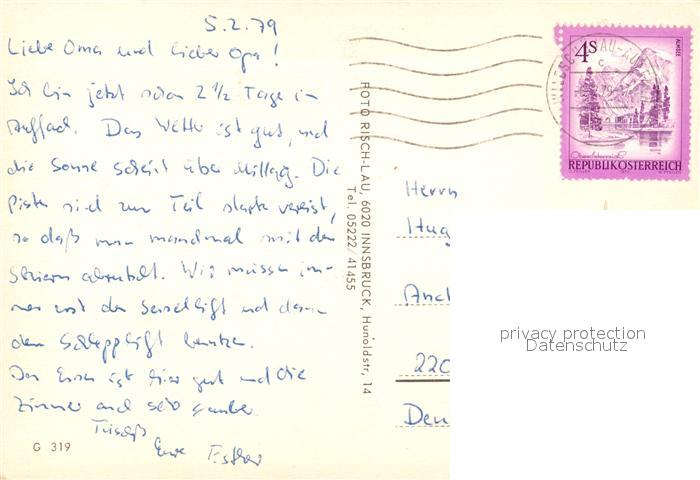 5.2.79
Liebe Oma und lieber Opa!
Ich bin jetzt schon 2 1/2 Tage in
Auffach. Das Wetter ist gut, und
die Sonne scheint über Mittag. Die
Pisten sind zum Teil stark vereist,
so daß man manchmal mit den
Skiern abrutscht. Wir müssen im-
mer erst den Sessellift und dann
den Schlepplift benutzen.
Das Essen ist hier gut und die
Zimmer auch sehr sauber.
Tschüß
Eure Esther
G 319
FOTO RISCH-LAU, 6020 INNSBRUCK, Hunoldstr. 14
Tel. 05222/41455
4S
ALMSEE
REPUBLIK ÖSTERREICH
Herrn
Hug
And
220
Deu
privacy protection
Datenschutz